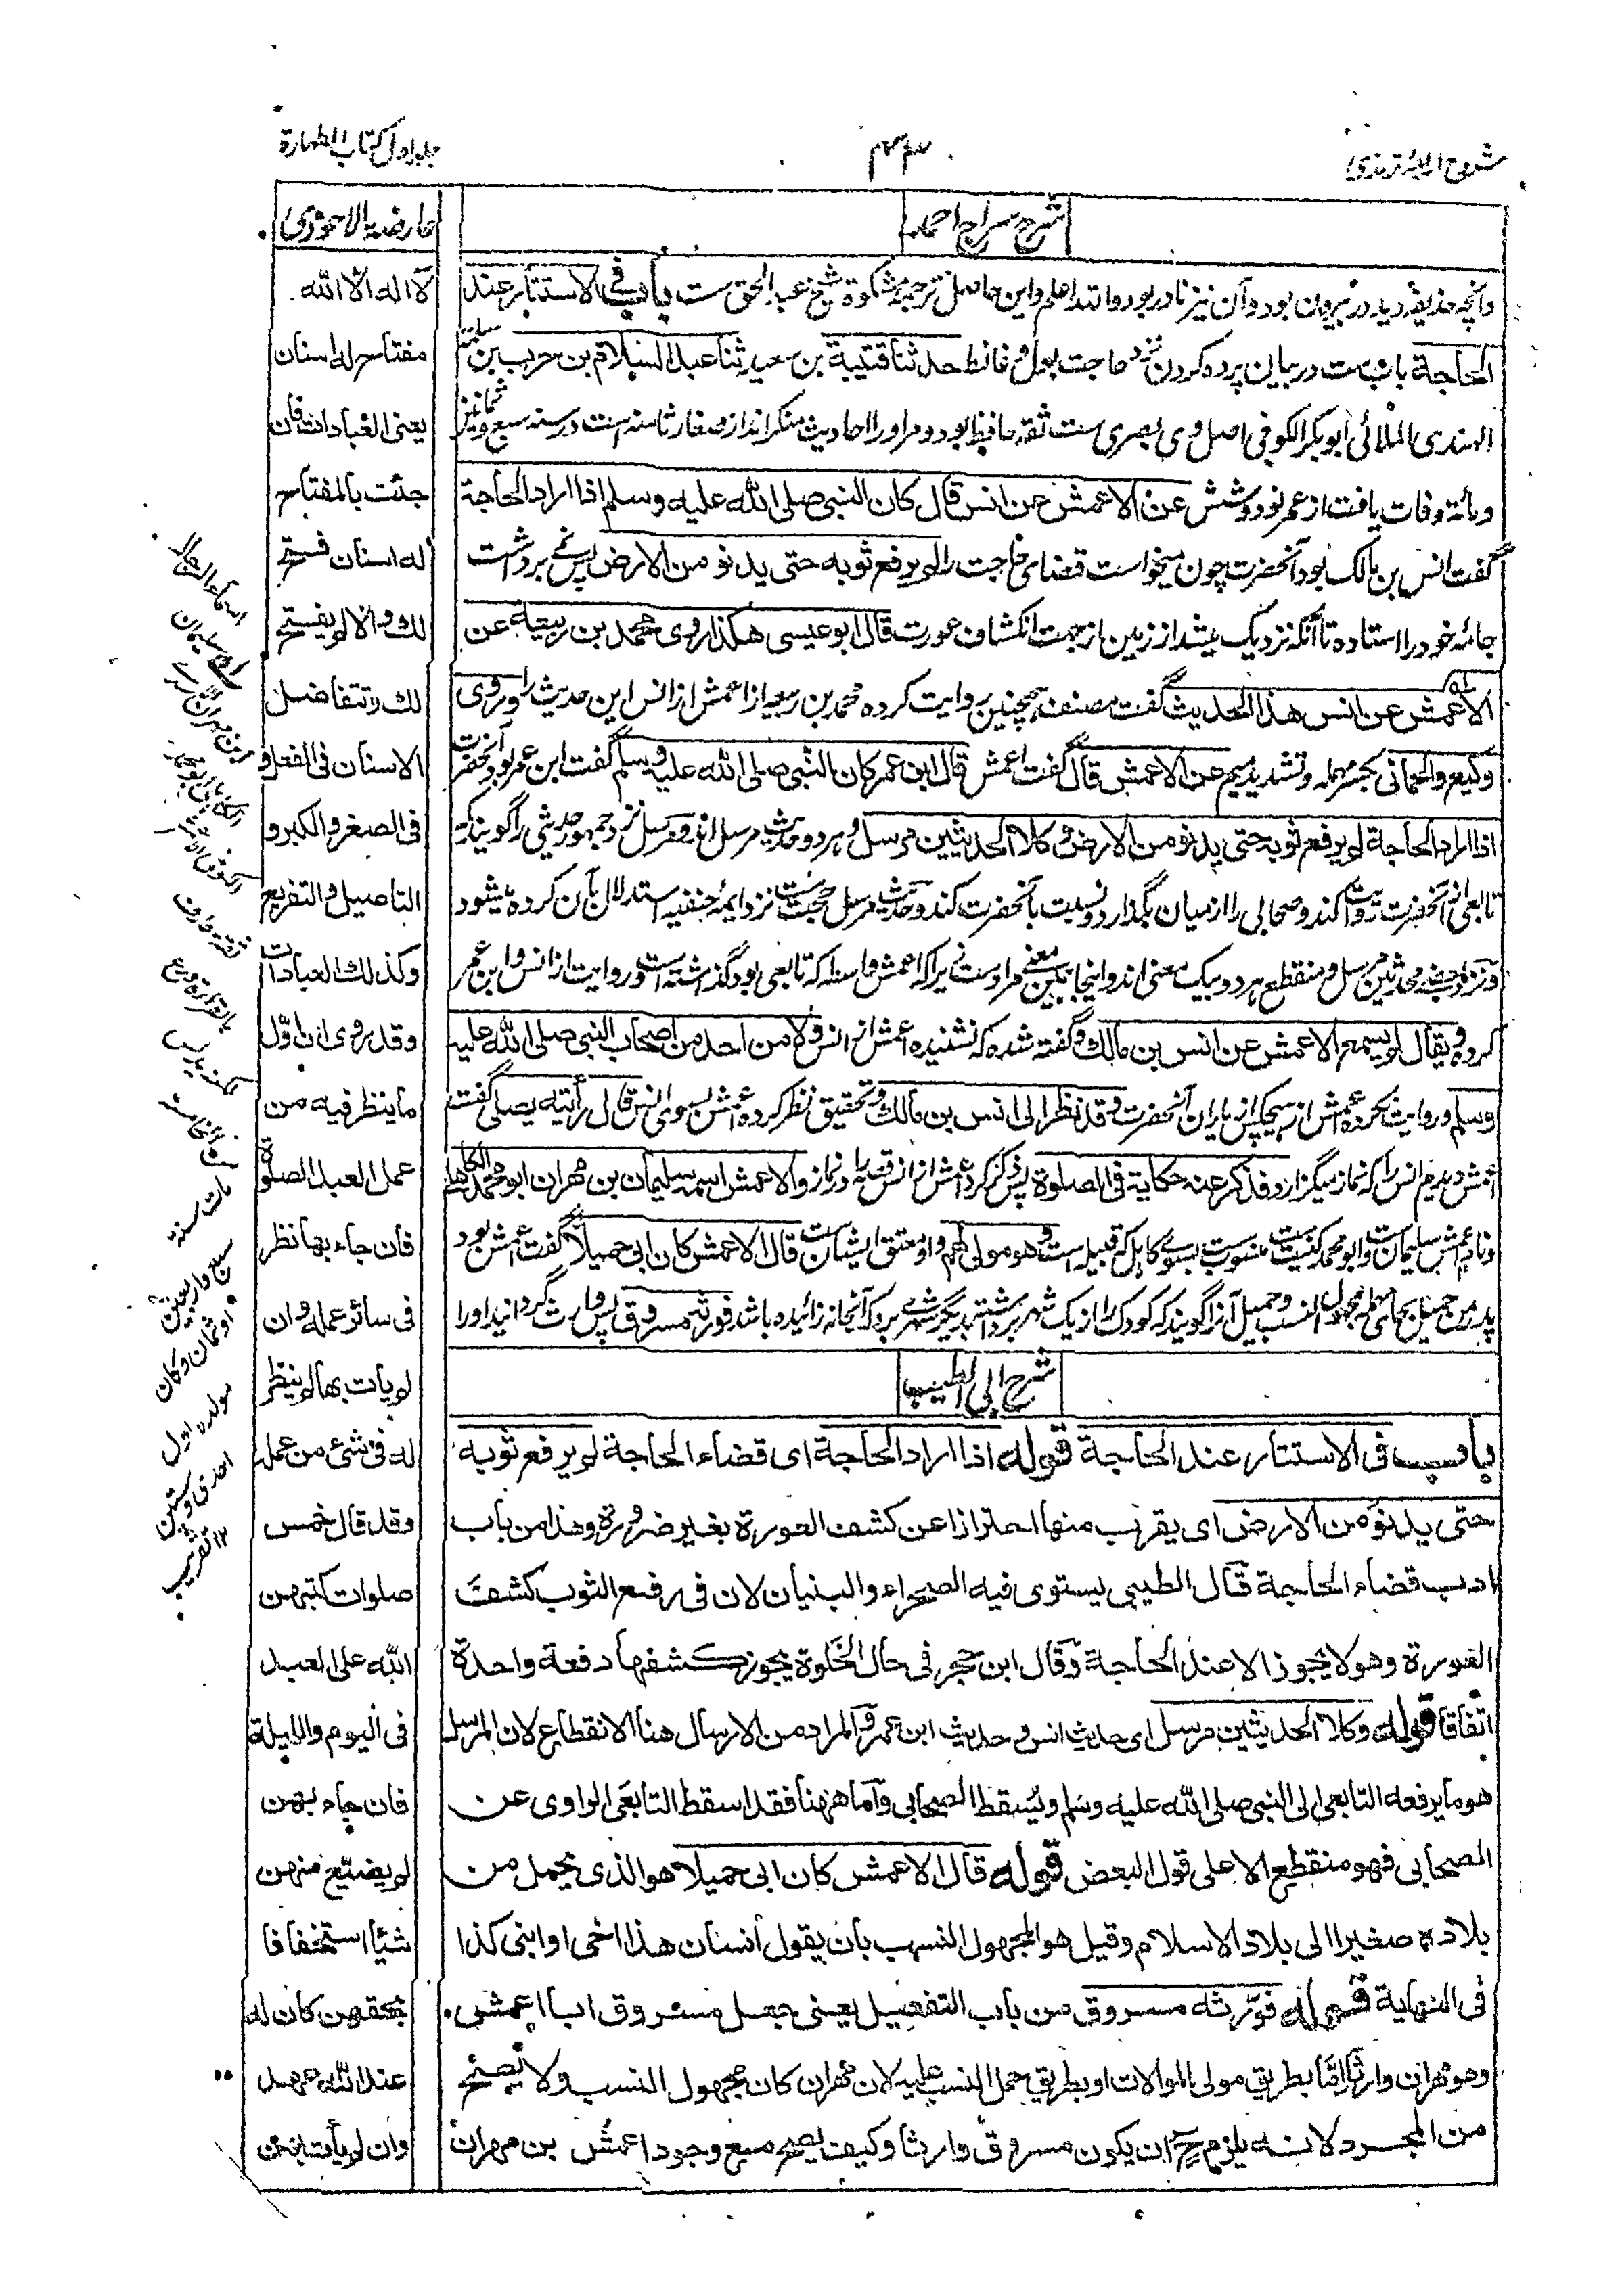 شروح اربعہ ترمذی
۴۳
جلد اول کتاب الطهارة
شرح سراج احمد
وآنچه حذیفه دید در بیرون بوده وآن نیز نادر بود والله اعلم واین حاصل ترجمهٔ مشکوة شیخ عبد الحق ست باب فی الاستتار عند
الحاجة بابست در بیان پرده کردن نزد حاجت بول و غائط حدثنا قتیبة بن سعید ثنا عبد السلام بن حرب بن سلمة
النهدی الملائی ابو بکر الکوفی اصل وی بصری ست ثقه حافظ بود ومر اورا احادیث منکر اند از صغار ثامنه است در سنه سبع وثمانین
ومائة وفات یافت از عمر نود وشش عن الاعمش عن انس قال کان النبی صلی الله علیه وسلم اذا اراد الحاجة
گفت انس بن مالک بود آنحضرت چون میخواست قضای حاجت را لم یرفع ثوبه حتی یدنو من الارض پس نمے برداشت
جامهٔ خود را استاده تا آنکه نزدیک میشد از زمین از جهت انکشاف عورت قال ابو عیسی هکذا روی محمد بن ربیعة عن
الاعمش عن انس هذا الحدیث گفت مصنف همچنین روایت کرده محمد بن ربیعه از اعمش از انس این حدیث را وروی
وکیع والحمانی بکسر مهمله وتشدید میم عن الاعمش قال گفت اعمش قال ابن عمر کان النبی صلی الله علیه وسلم گفت ابن عمر بود آنحضرت
اذا اراد الحاجة لم یرفع ثوبه حتی یدنو من الارض وکلا الحدیثین مرسل و هر دو حدیث مرسل اند ومرسل نزد جمهور حدیثی را گویند که
تابعی از آنحضرت روایت کند وصحابی را از میان بگذارد ونسبت بآنحضرت کند وحدیث مرسل حجت ست نزد ایمهٔ حنفیه استدلال بآن کرده میشود
ونزد بعضے محدثین مرسل ومنقطع هر دو بیک معنی اند واینجا همین معنے مراد ست زیراکه اعمش واسطه که تابعی بود گذاشته است وروایت از انس وابن عمر
کرده ویقال لم یسمع الاعمش عن انس بن مالک وگفته شده که نشنیده اعمش از انس ولا من احد من اصحاب النبی صلی الله علیه
وسلم وروایت نکرده اعمش از هیچکس از یاران آنحضرت وقد نظر الی انس بن مالک وتحقیق نظر کرده اعمش بسوی انس قال رأیته یصلی گفت
اعمش دیدم انس را که نماز میگزارد فذکر عنه حکایة فی الصلوة پس ذکر کرد اعمش از انس قصه را در نماز والاعمش اسمه سلیمان بن مهران ابو محمد الکاهلی
ونام اعمش سلیمان ست وابو محمد کنیت ست منسوب ست بسوے کاهل که قبیله است وهو مولی لهم واو معتق ایشان ست قال الاعمش کان ابی حمیلا گفت اعمش بود
پدر من حمیل بحای مهمله مجهول النسب وحمیل آنرا گویند که کودک را از یک شهر برداشته بدیگر شهرے برد که آنجا نه زائیده باشد فورثه مسروق پس وارث گردانید اورا
شرح ابی الطیب
باب فی الاستتار عند الحاجة قوله اذا اراد الحاجة ای قضاء الحاجة لم یرفع ثوبه
حتی یدنو من الارض ای یقرب منها احترازا عن کشف العورة بغیر ضرورة وهذا من باب
ادب قضاء الحاجة قال الطیبی یستوی فیه الصحراء والبنیان لان فی رفع الثوب کشف
العورة وهو لا یجوز الا عند الحاجة وقال ابن حجر فی حال الخلوة یجوز کشفها دفعة واحدة
اتفاقا قوله وکلا الحدیثین مرسل ای حدیث انس وحدیث ابن عمر والمراد من الارسال هنا الانقطاع لان المرسل
هو ما یرفعه التابعی الی النبی صلی الله علیه وسلم ویسقط الصحابی وأما ههنا فقد اسقط التابعی الراوی عن
الصحابی فهو منقطع الا علی قول البعض قوله قال الاعمش کان ابی حمیلا هو الذی یحمل من
بلاده صغیرا الی بلاد الاسلام وقیل هو المجهول النسب بان یقول انسان هذا اخی او ابنی کذا
فی النهایة قوله فورثه مسروق من باب التفعیل یعنی جعل مسروق ابا اعمش
وهو مهران وارثا إمّا بطریق مولی الموالات او بطریق حمل النسب علیه لان مهران کان مجهول النسب ولا یصح
من المجرد لانه یلزم ح ان یکون مسروق وارثا وکیف یصح مع وجود اعمش بن مهران
عارضة الاحوذی
لا اله الا الله
مفتاح له اسنان
یعنی العبادات فان
جئت بالمفتاح
له اسنان فتح
لك والا لم یفتح
لك وتتفاضل
الاسنان فی الفعل و
فی الصغر والکبر و
التاصیل والتفریع
وکذلك العبادات
وقد روی ان اول
ما ینظر فیه من
عمل العبد الصلوة
فان جاء بها نظر
فی سائر عمله وان
لم یات بها لم ینظر
له فی شئ من عمله
وقد قال خمس
صلوات کتبهن
الله علی العبد
فی الیوم واللیلة
فان جاء بهن
لم یضیع منهن
شیئا استخفافا
بحقهن کان له
عند الله عهد
وان لم یأت بهن
اسماء الرجال
سلیمان
بن مهران
ثقة حافظ عارف
بالقراءة ورع
من الخامسة
مات سنة
سبع واربعین
او ثمان وکان
مولده اول
احدی وستین
۱۲ تقریب